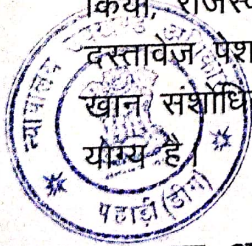 किया, राजस्व
दस्तावेज पेश
खान संशोधि
योग्य है।
न्यायालय
पहाड़ी (डीग)